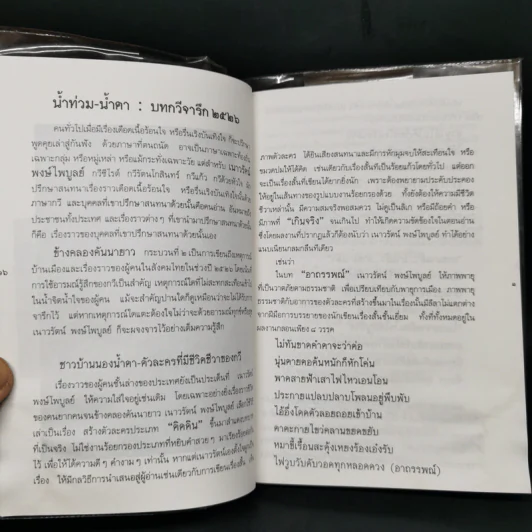 น้ำท่วม-น้ำตา : บทกวีจารึก ๒๕๒๖
คนทั่วไปเมื่อมีเรื่องเดือดเนื้อร้อนใจ หรือรื่นเริงบันเทิงใจ ก็จะปรึกษา
พูดคุยเล่าสู่กันฟัง ด้วยภาษาที่ตนถนัด อาจเป็นภาษาเฉพาะท้องถิ่น
เฉพาะกลุ่ม หรือหมู่เหล่า หรือแม้กระทั่งเฉพาะวัย แต่สำหรับ เนาวรัตน์
พงษ์ไพบูลย์ กวีซีไรต์ กวีรัตนโกสินทร์ กวีแก้ว กวีด้วยหัวใจ
ปรึกษาสนทนาเรื่องราวเดือดเนื้อร้อนใจ หรือรื่นเริงบันเทิงใจด้วย
ภาษากวี และบุคคลที่เขาปรึกษาสนทนาด้วยนั้นคือคนอ่าน อันหมายถึง
ประชาชนทั้งประเทศ และเรื่องราวต่างๆ ที่เขานำมาปรึกษาสนทนาด้วยนั้น
ก็คือ เรื่องราวของบุคคลที่เขาปรึกษาสนทนาด้วยนั้นเอง
ช้างคลองคันนายาว กระบวนที่ ๒ เป็นการเขียนถึงเหตุการณ์
บ้านเมืองและเรื่องราวของผู้คนในสังคมไทยในช่วงปี ๒๕๒๖ โดยเน้น
การใช้อารมณ์รู้สึกของกวีเป็นสำคัญ เหตุการณ์ใดที่ไม่สะกสะเทือนเข้าไป
ในน้ำจิตน้ำใจของผู้คน แม้จะสำคัญปานใดก็ดูเหมือนว่าจะไม่ได้รับการ
จารึกไว้ แต่หากเหตุการณ์ใดแตะต้องใจไม่ว่าจะด้วยอารมณ์ทุกข์หรือสุข
เนาวรัตน์ พงษ์ไพบูลย์ ก็จะผจงจารไว้อย่างเต็มความรู้สึก
ชาวบ้านนองน้ำตา-ตัวละครที่มีชีวิตชีวาของกวี
เรื่องราวของผู้คนชั้นล่างของประเทศยังเป็นประเด็นที่ เนาวรัตน์
พงษ์ไพบูลย์ ให้ความใส่ใจอยู่เช่นเดิม โดยเฉพาะอย่างยิ่งเรื่องราวชีวิต
ของคนยากคนจนข้างคลองคันนายาว เนาวรัตน์ พงษ์ไพบูลย์ เลือกวิธีการ
เล่าเป็นเรื่อง สร้างตัวละครประเภท "ติดดิน" ขึ้นมาเล่าตามสภาพ
ที่เป็นจริง ไม่ใช่งานร้อยกรองประเภทที่หยิบคำสวยๆ มาเรียงร้อย
ไว้ เพื่อให้ได้ความดีๆ คำงามๆ เท่านั้น หากแต่เนาวรัตน์
เรื่อง ให้มีกลวิธีการนำเสนอสู่ผู้อ่านเช่นเดียวกับการเขียนเรื่องสั้น
ภาพตัวละคร ได้ยินเสียงสนทนาและมีการหักมุมจบให้สะเทือนใจ หรือ
ขมวดปมให้ได้คิด เช่นเดียวกับเรื่องสั้นที่เป็นร้อยแก้วโดยทั่วไป แต่ออก
จะเป็นเรื่องสั้นที่เขียนได้ยากยิ่งนัก เพราะต้องพยายามประคับประคอง
ให้อยู่ในเส้นทางของรูปแบบงานร้อยกรองด้วย ทั้งยังต้องให้ความมีชีวิต
ชีวาเหล่านั้น มีความสมจริงพอสมควร ไม่ดูเป็นลิเก หรือมีถ้อยคำ หรือ
มีภาพที่ "เกินจริง" จนเกินไป ทำให้เกิดความขัดข้องใจในตอนอ่าน
ซึ่งโดยผลงานที่ปรากฏแล้วก็ต้องนับว่า เนาวรัตน์ พงษ์ไพบูลย์ ทำได้อย่าง
แนบเนียนกลมกลืนทีเดียว
เช่นว่า
ในบท "อาถรรพณ์" เนาวรัตน์ พงษ์ไพบูลย์ ให้ภาพพายุ
ที่เป็นวาตภัยตามธรรมชาติ เพื่อเปรียบเทียบกับพายุการเมือง ภาพพายุ
ธรรมชาติกับอาการของตัวละครที่สร้างขึ้นมาในเรื่องนั้นมีลีลาไม่แตกต่าง
จากมีการบรรยายของนักเขียนเรื่องสั้นชั้นเยี่ยม ทั้งที่ทั้งหมดอยู่ใน
ผลงานกลอนเพียง ๘ วรรค
ไม่ทันขาดคำตาจะว่าต่อ
มุ่นคายคอค้นหนักก็หักโค่น
พาดสายฟ้าเสาไฟไหวเอนโอน
ประกายแปลบปลาบโพลนอยู่พึบพับ
ไอ้ยิ่งโดดตัวลอยถอยเข้าบ้าน
ตาตะกายไขว่คลานขยดขยับ
หมาขี้เรื้อนสะดุ้งเหยงร้องเอ๋งรับ
ไฟวูบวับดับวอดทุกหลอดดวง (อาถรรพณ์)